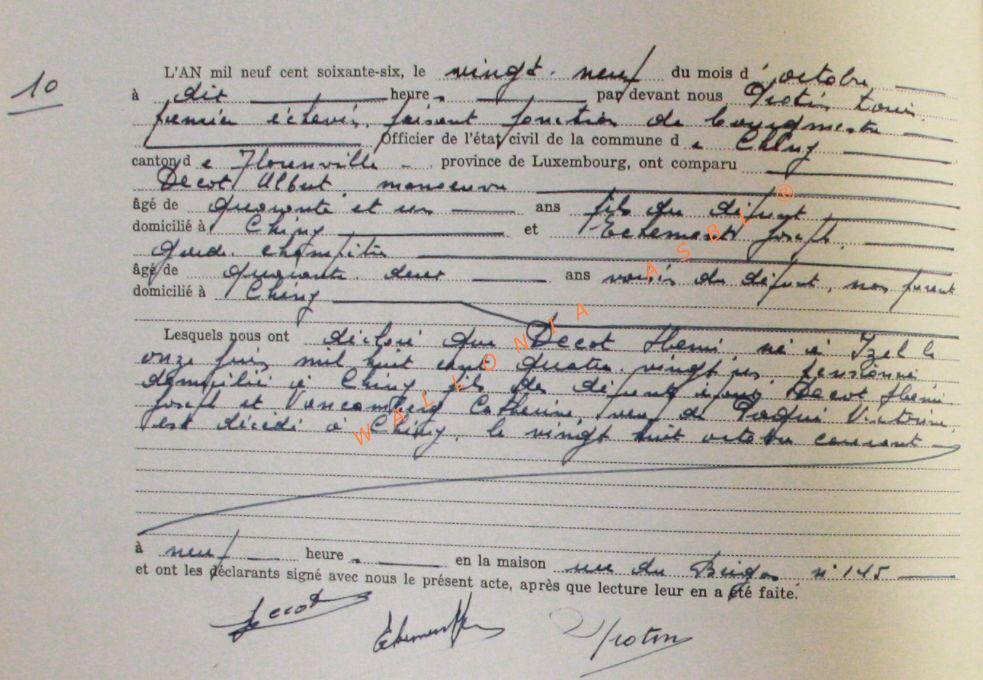 10
L'AN mil neuf cent soixante-six, le vingt-neuf du mois d' octobre
à dix heure s par devant nous Protin Louis
premier échevin faisant fonction de bourgmestre
Officier de l'état civil de la commune d e Chiny
canton d e Florenville, province de Luxembourg, ont comparu
Decot Albert manoeuvre
âgé de quarante et un ans fils du défunt
domicilié à Chiny et Joseph
garde champêtre
âgé de quarante deux ans voisin du défunt, non parent
domicilié à Chiny
Lesquels nous ont déclaré que Decot Henri né à Izel le
onze mil huit cent quatre vingt pensionné
domicilié à Chiny fils de défunts époux Decot Henri
Joseph et Catherine, veuf de Paquis Victorine
est décédé à Chiny, le vingt huit octobre courant
à neuf heure s en la maison rue du n° 145
et ont les déclarants signé avec nous le présent acte, après que lecture leur en a été faite.
Decot
Protin
WALLONIA ASBL ®